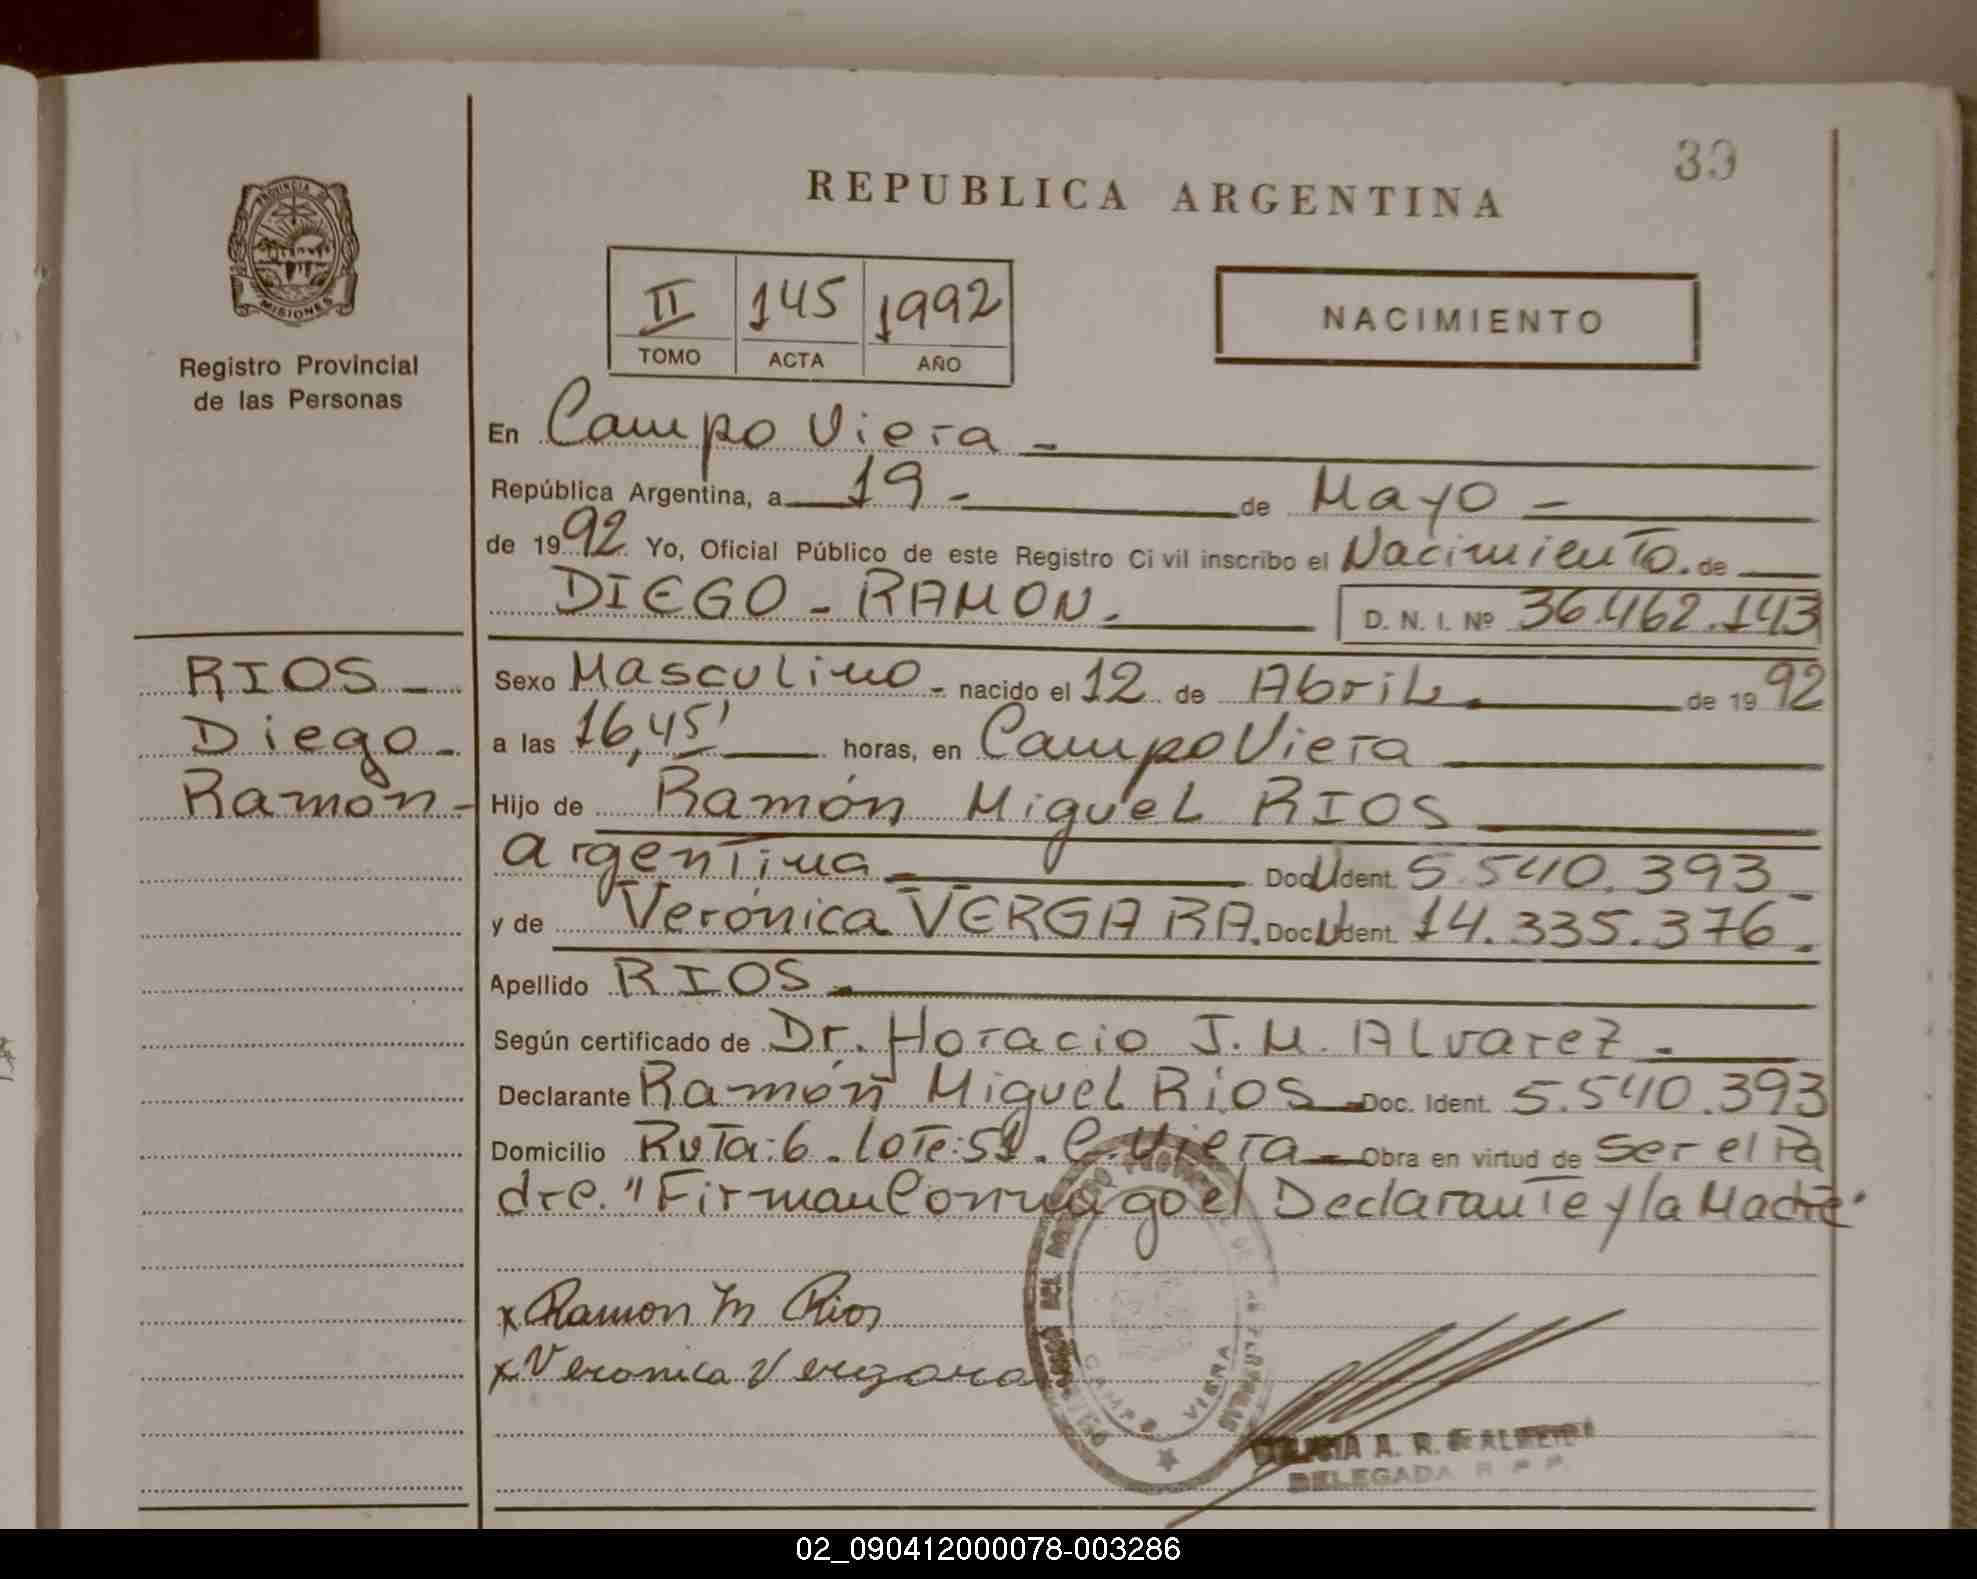 39
REPUBLICA ARGENTINA
PROVINCIA DE
MISIONES
Registro Provincial
de las Personas
II 145 1992
TOMO ACTA AÑO
NACIMIENTO
En Campo Viera -
República Argentina, a 19 - de Mayo -
de 1992 Yo, Oficial Público de este Registro Civil inscribo el Nacimiento. de
DIEGO - RAMON. D. N. I. Nº 36.462.143
RIOS -
Diego -
Ramón -
Sexo Masculino - nacido el 12 de Abril de 1992
a las 16,45' horas, en Campo Viera
Hijo de Ramón Miguel RIOS
argentina Doc U Ident. 5.540.393 -
y de Verónica VERGARA. Doc U Ident. 14.335.376.
Apellido RIOS
Según certificado de Dr. Horacio J. M. Alvarez -
Declarante Ramón Miguel Rios Doc. Ident. 5.540.393
Domicilio Ruta: 6 - lote: 51 - C. Viera - Obra en virtud de ser el Pa
dre. "Firman Conmigo el Declarante y la Madre"
x Ramon M Rios
x Veronica Vergara
CAMPO VIERA
A. R. de ALMEIDA
DELEGADA R. P. P.
02_090412000078-003286